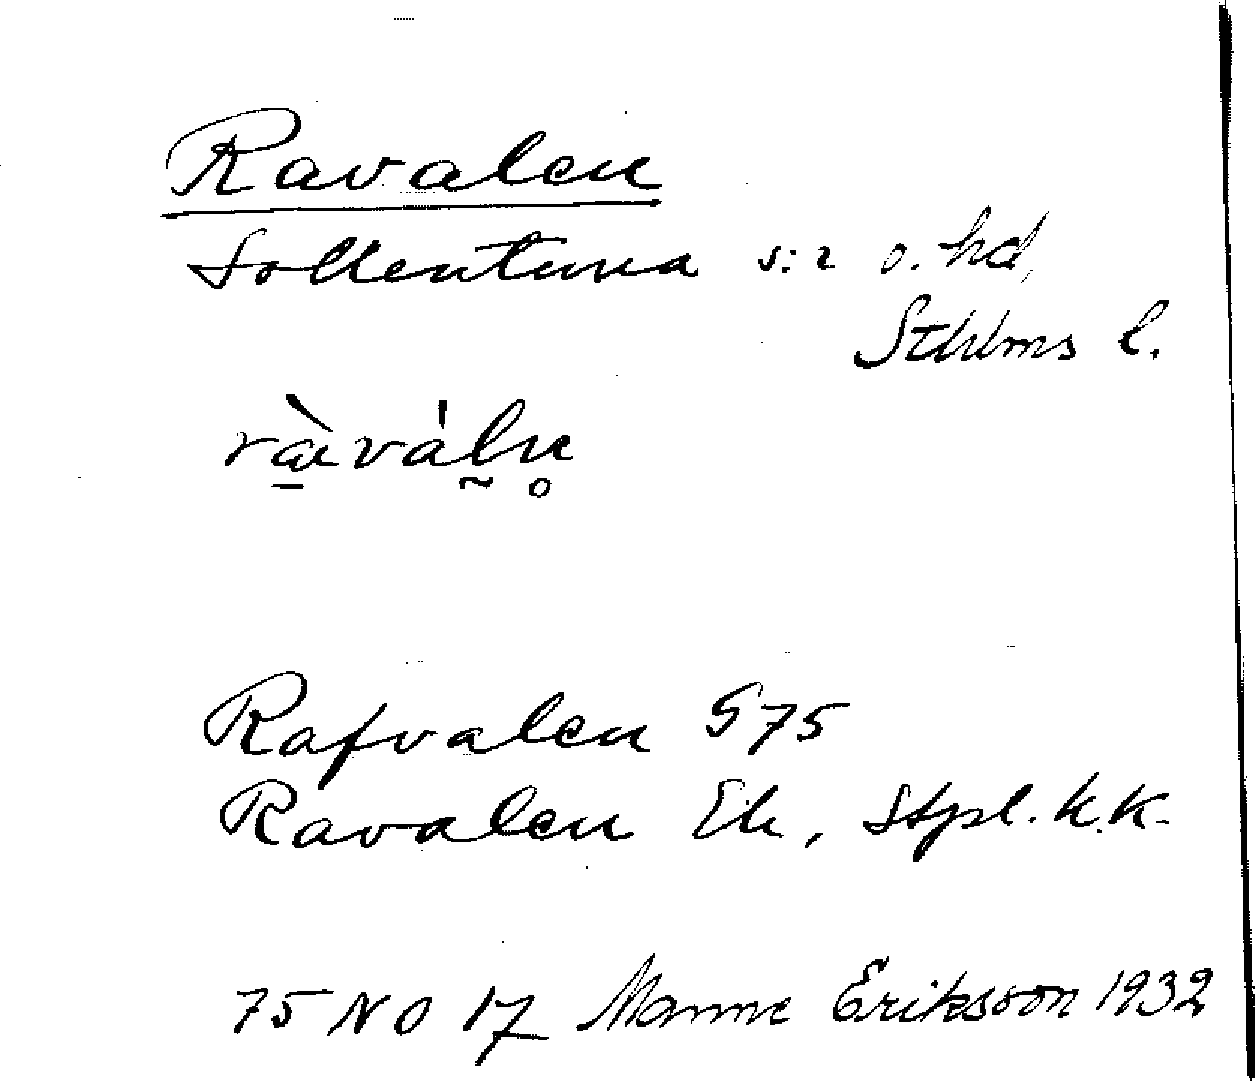 Ravalen
Sollentuna s:n o. hd,
Sthlms l.
ràváln̥
Rafvalen G75
Ravalen Ek, Stpl. k.k.
75 NO 17 Manne Eriksson 1932